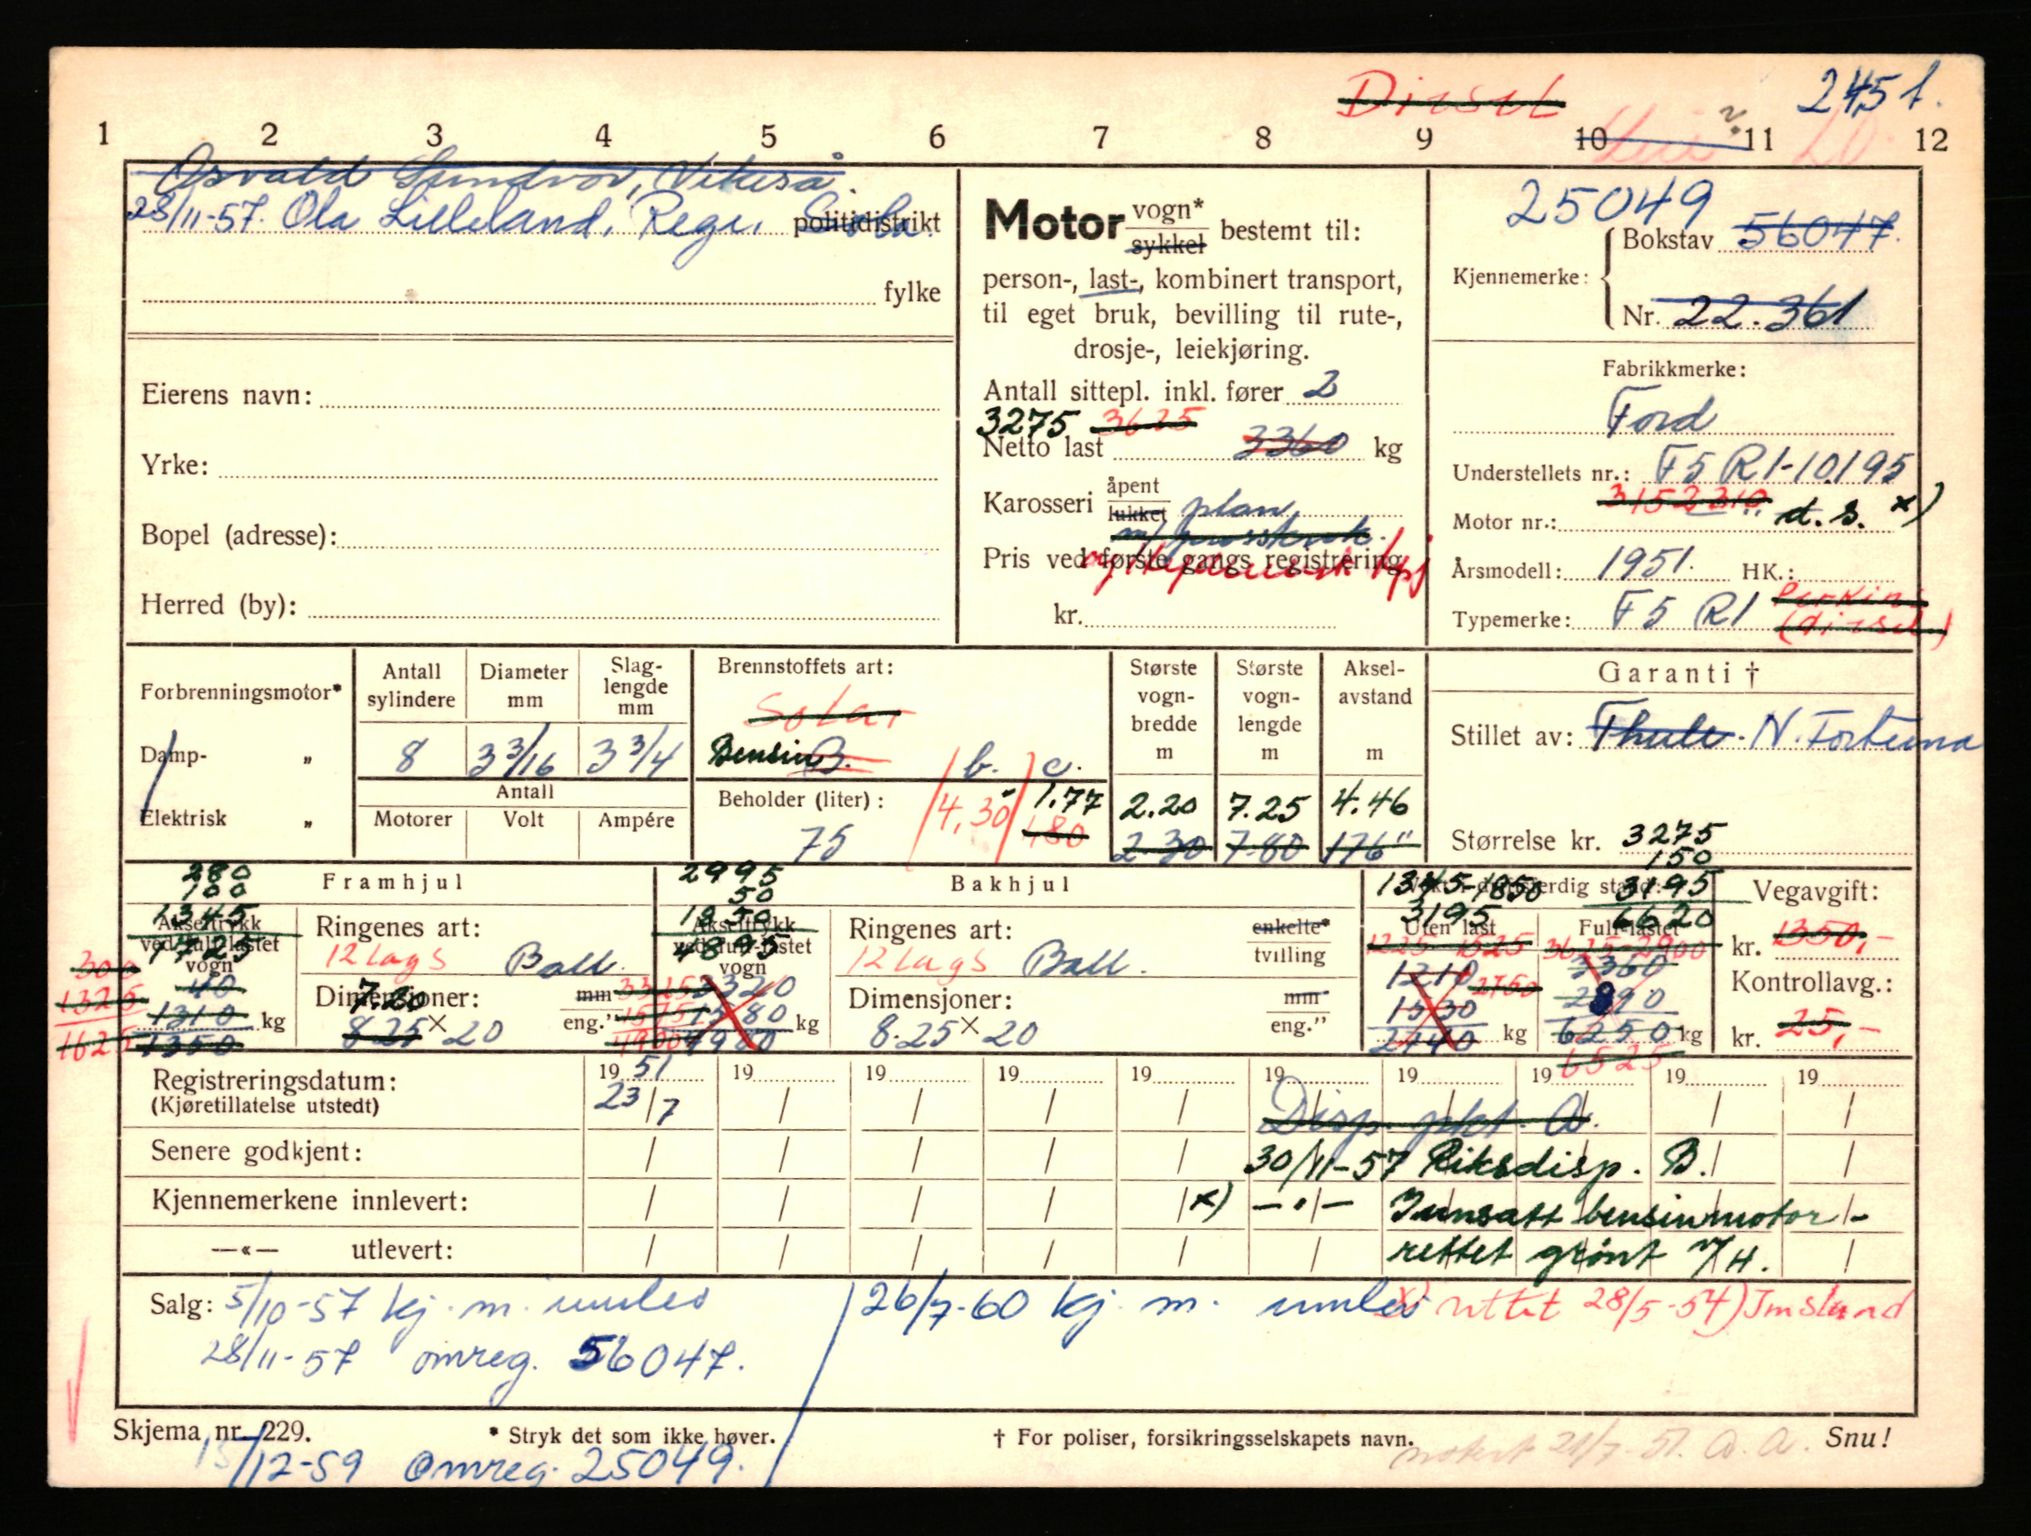 Diesel 245 f.
1 2 3 4 5 6 7 8 9 10 11 12
Osvald Sundvor, Vikeså.
28/11-57. Ola Lilleland, Rege, Sola. politidistrikt
fylke
Eierens navn:
Yrke:
Bopel (adresse):
Herred (by):
Motor vogn* sykkel bestemt til:
person-, last-, kombinert transport,
til eget bruk, bevilling til rute-,
drosje-, leiekjøring.
Antall sittepl. inkl. fører 2
3275 3625
Netto last 3360 kg
Karosseri åpent lukket plan
Pris ved første gangs registrering
kr.
25049
Kjennemerke: Bokstav 56047.
Nr. 22.361
Fabrikkmerke:
Ford
Understellets nr.: F5 R1-10195
3152310
Motor nr.: d.s. x)
Årsmodell: 1951. HK.:
Perkins
Typemerke: F5 R1 (diesel)
Forbrenningsmotor*
Damp- „
Elektrisk „
Antall sylindere Diameter mm Slaglengde mm
8 3 3/16 3 3/4
Antall
Motorer Volt Ampére
Brennstoffets art:
Solar
Bensin B. b. c.
Beholder (liter):
75 4.30 1.77
180
Største vognbredde m Største vognlengde m Akselavstand m
2.20 7.25 4.46
2.30 7.80 176"
Garanti †
Stillet av: Thule. N. Fortuna
Størrelse kr. 3275
150
3195
6620
Framhjul
280
100
1345
1725
Akseltrykk ved fullt lastet vogn
300
1325
1625
40
1310 kg
1350
Ringenes art:
12 lags Ball.
Dimensjoner: mm eng.”
7.20
8.25 x 20
Bakhjul
2995
50
1850
4895
Akseltrykk ved fullt lastet vogn
3325 3320
1575 1580 kg
4900 4980
Ringenes art: enkelte* tvilling
12 lags Ball.
Dimensjoner: mm eng.”
8.25 x 20
1345-1850
3195
Uten last Fullt lastet
1225 1525 3625-2900
1210 2750 3360
1530 2890
2740 kg 6250 kg
6525
Vegavgift:
kr. 1350,-
Kontrollavg.:
kr. 25,-
Registreringsdatum: 19 51 19 19 19 19 19 19 19 19 19
(Kjøretillatelse utstedt) 23/7 Disp. pkt. A.
Senere godkjent: 30/11-57 Riksdisp. B.
Kjennemerkene innlevert: x) —"— Innsatt bensinmotor -
—«— utlevert: rettet grønt
Salg: 5/10-57 kj. m. innlev 26/7-60 kj. m. innlev x) rettet 28/5-54) Imsland
28/11-57 omreg. 56047.
Skjema nr. 229. * Stryk det som ikke høver. † For poliser, forsikringsselskapets navn. Snu!
15/12-59 Omreg. 25049. notert 21/7-51. A. A.